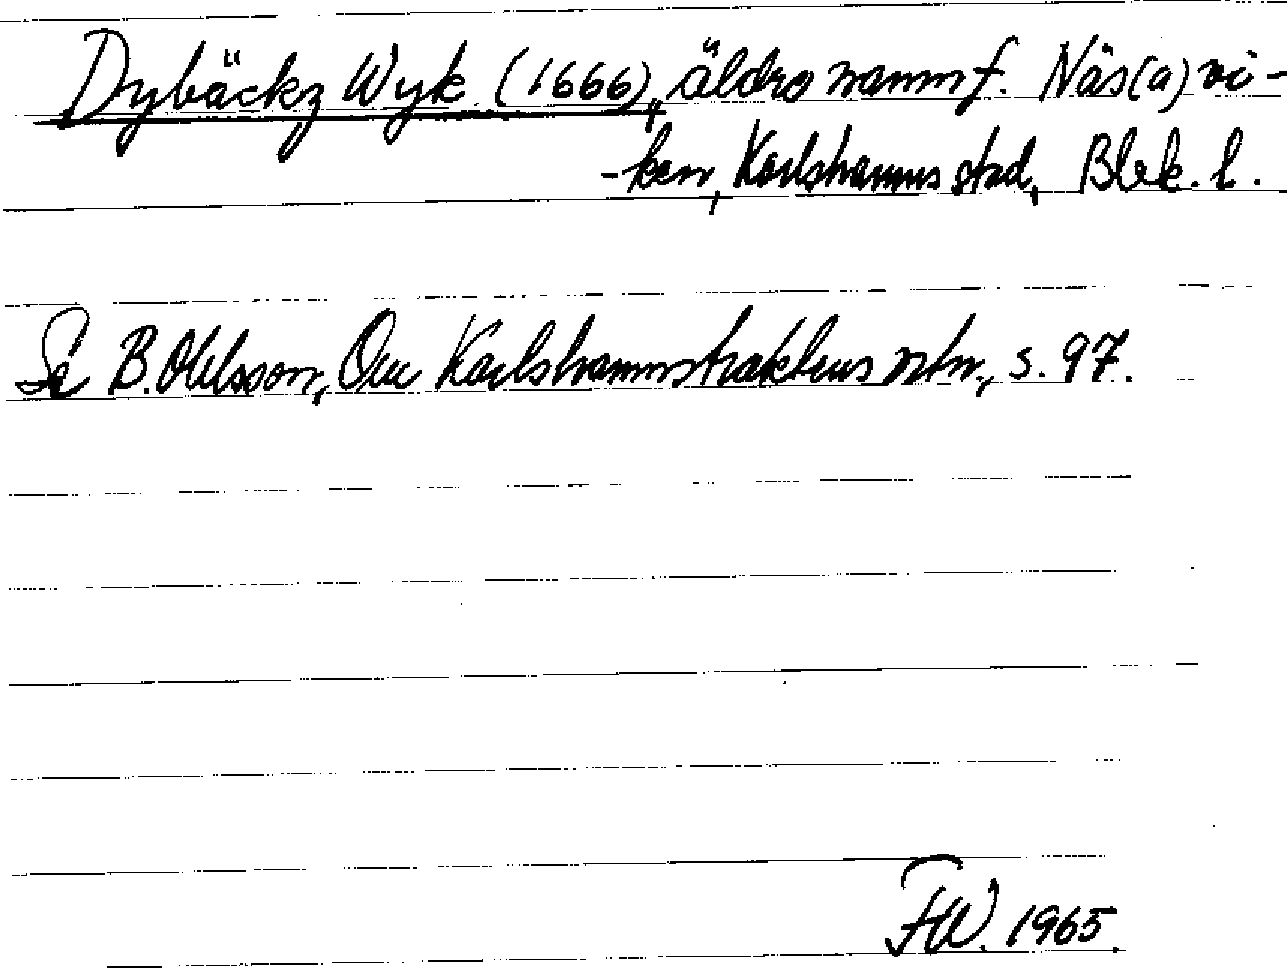 Dybäckz Wyk (1666), äldre namn f. Näs(a)vi-
-ken, Karlshamns stad, Blek. l.
Se B. Ohlsson, Om Karlshamnstraktens ortn., s. 97.
FW. 1965.